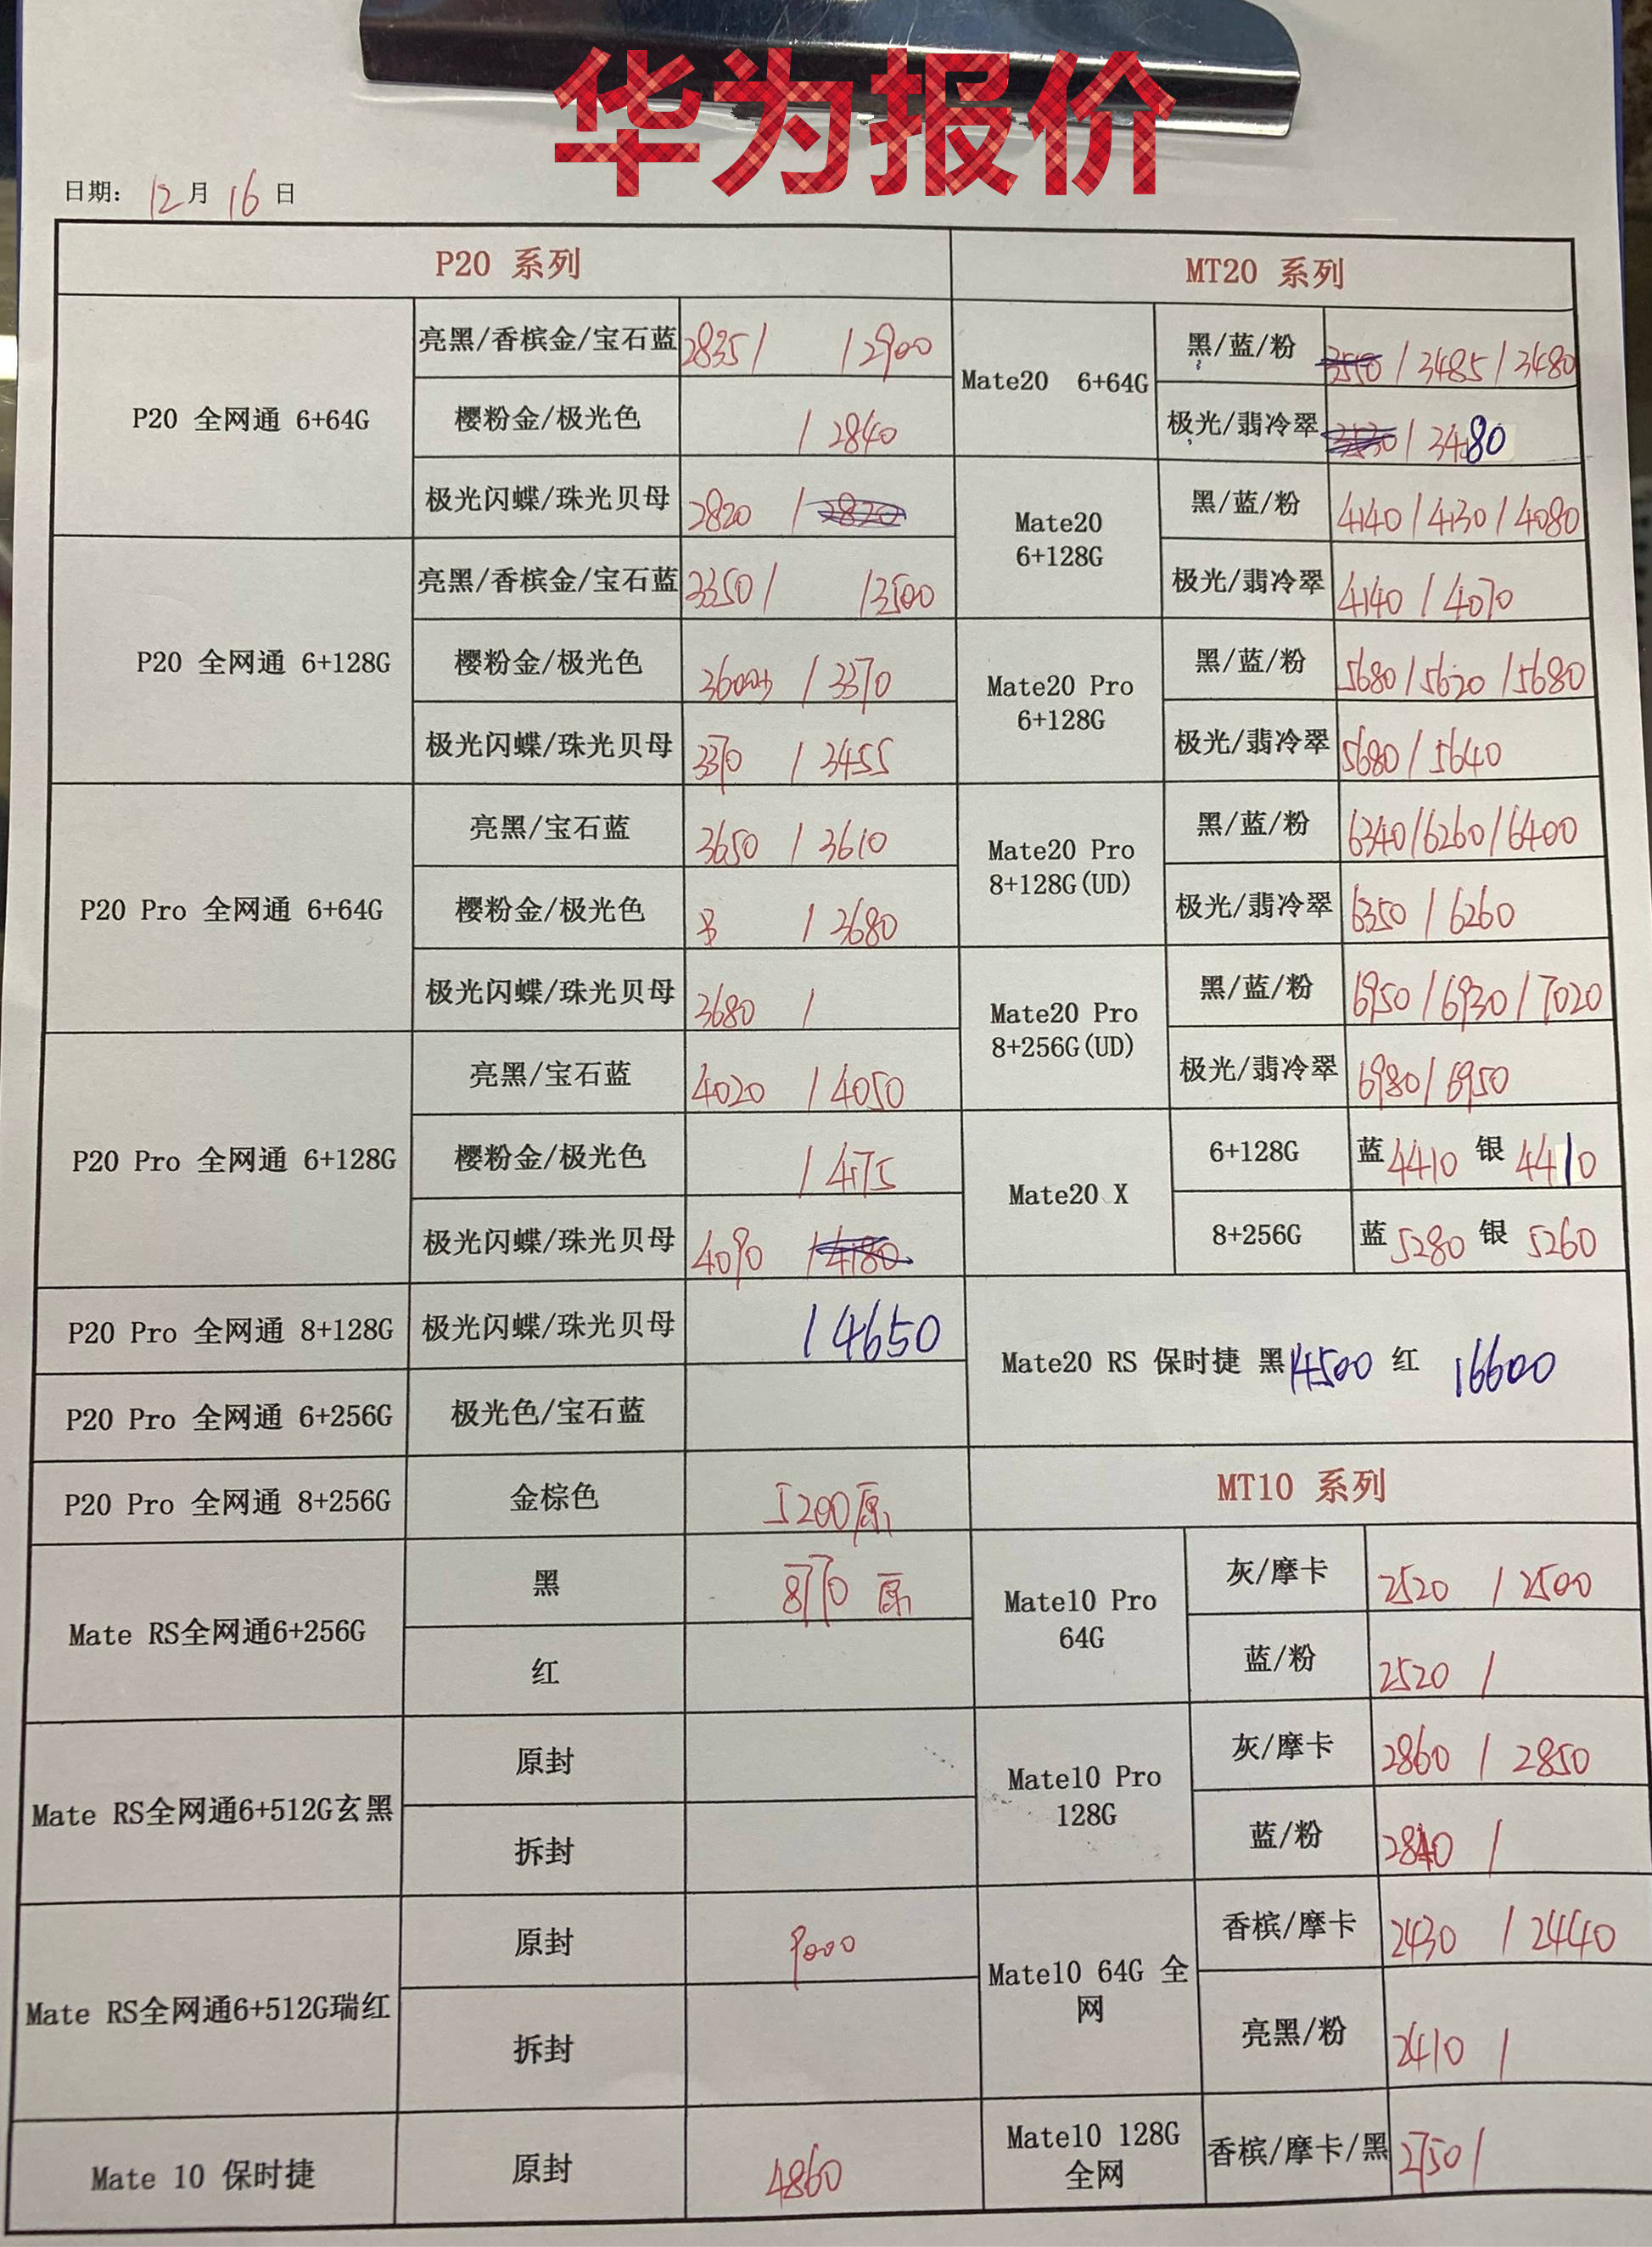 华为报价
日期： 12 月 16 日
P20 系列
P20 全网通 6+64G
亮黑/香槟金/宝石蓝 2835/ /2900
樱粉金/极光色 / 2840
极光闪蝶/珠光贝母 2820 /
P20 全网通 6+128G
亮黑/香槟金/宝石蓝 3350/ /3500
樱粉金/极光色 / 3370
极光闪蝶/珠光贝母 3370 / 3455
P20 Pro 全网通 6+64G
亮黑/宝石蓝 3650 / 3610
樱粉金/极光色 / 3680
极光闪蝶/珠光贝母 3680 /
P20 Pro 全网通 6+128G
亮黑/宝石蓝 4020 / 4050
樱粉金/极光色 / 4175
极光闪蝶/珠光贝母 4090 / 4180
P20 Pro 全网通 8+128G 极光闪蝶/珠光贝母 / 4650
P20 Pro 全网通 6+256G 极光色/宝石蓝
P20 Pro 全网通 8+256G 金棕色 5200原
Mate RS全网通6+256G
黑 8770 原
红
Mate RS全网通6+512G玄黑
原封
拆封
Mate RS全网通6+512G瑞红
原封 9000
拆封
Mate 10 保时捷 原封 4860
MT20 系列
Mate20 6+64G
黑/蓝/粉 / 3485 / 3480
极光/翡冷翠 / 3480
Mate20
6+128G
黑/蓝/粉 4140 / 4130 / 4080
极光/翡冷翠 4140 / 4070
Mate20 Pro
6+128G
黑/蓝/粉 5680 / 5620 / 5680
极光/翡冷翠 5680 / 5640
Mate20 Pro
8+128G(UD)
黑/蓝/粉 6340/6260/6400
极光/翡冷翠 6350 / 6260
Mate20 Pro
8+256G(UD)
黑/蓝/粉 6950 / 6930 / 7020
极光/翡冷翠 6980 / 6950
Mate20 X
6+128G 蓝 4410 银 4410
8+256G 蓝 5280 银 5260
Mate20 RS 保时捷 黑 14500 红 16600
MT10 系列
Mate10 Pro
64G
灰/摩卡 2520 / 2500
蓝/粉 2520 /
Mate10 Pro
128G
灰/摩卡 2860 / 2850
蓝/粉 2840 /
Mate10 64G 全
网
香槟/摩卡 2430 / 2440
亮黑/粉 2410 /
Mate10 128G
全网
香槟/摩卡/黑 2750 /